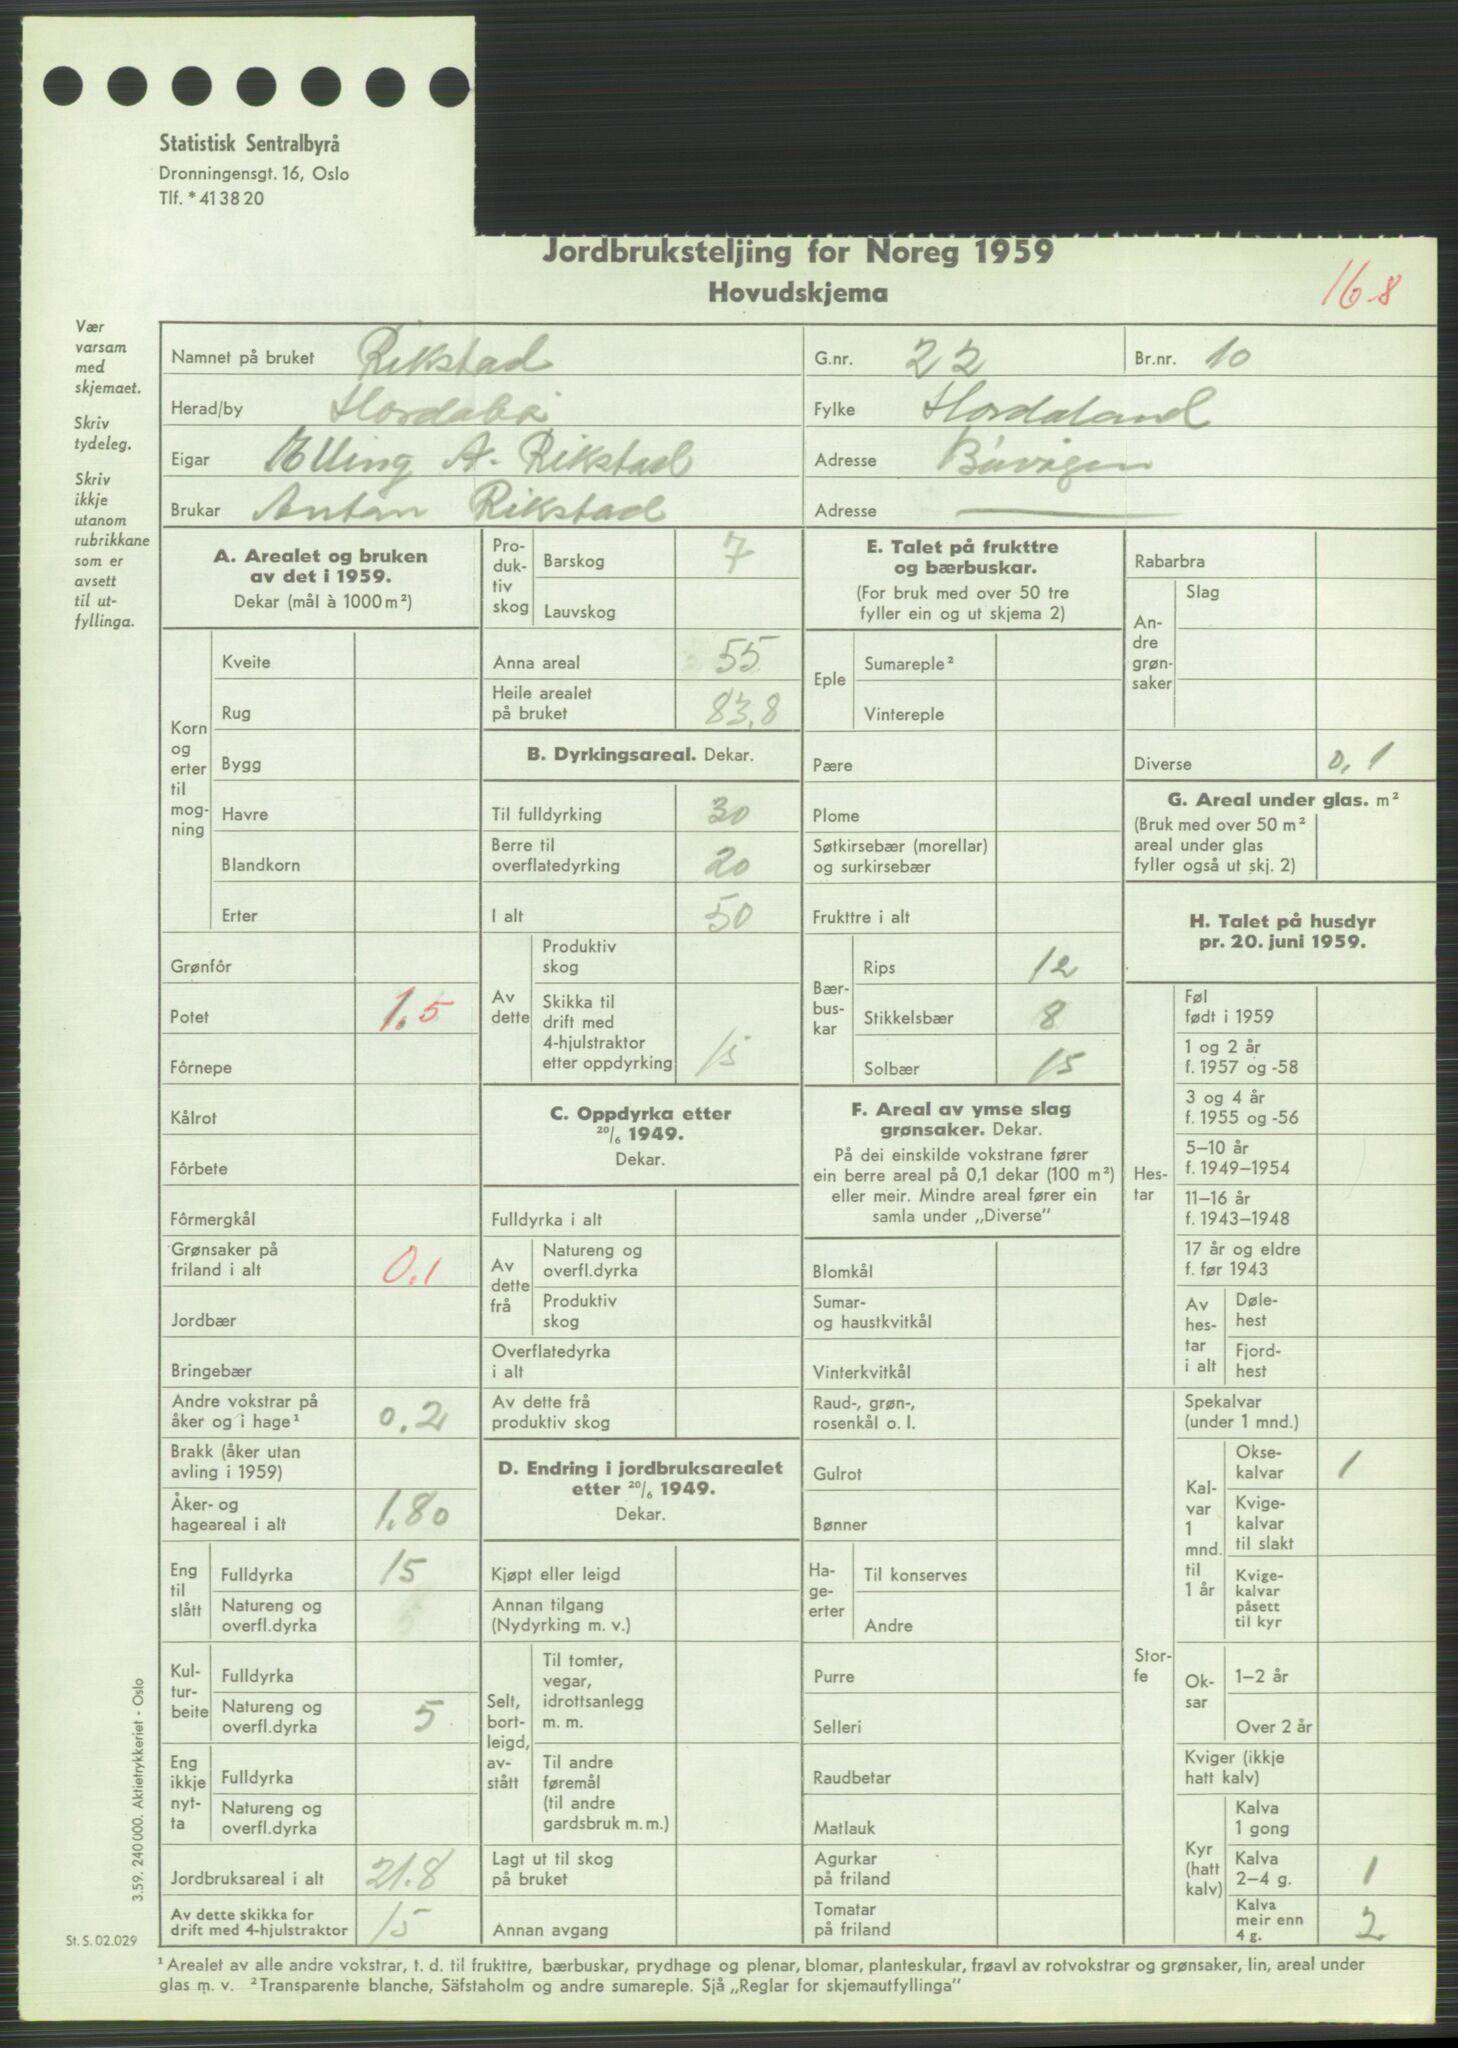 Statistisk Sentralbyrå
Dronningensgt. 16, Oslo
Tlf. * 41 38 20
Jordbruksteljing for Noreg 1959
Hovudskjema
16.8
Vær
varsam
med
skjemaet.
Skriv
tydeleg.
Skriv
ikkje
utanom
rubrikkane
som er
avsett
til ut-
fyllinga.
Namnet på bruket Rikstad G.nr. 22 Br.nr. 10
Herad/by Hordabø Fylke Hordaland
Eigar Elling A. Rikstad Adresse Bøvågen
Brukar Anton Rikstad Adresse
A. Arealet og bruken
av det i 1959.
Dekar (mål à 1000 m²)
Korn
og
erter
til
mog-
ning
Kveite
Rug
Bygg
Havre
Blandkorn
Erter
Grønfôr
Potet 1.5
Fôrnepe
Kålrot
Fôrbete
Fôrmergkål
Grønsaker på
friland i alt 0,1
Jordbær
Bringebær
Andre vokstrar på
åker og i hage¹ 0.2
Brakk (åker utan
avling i 1959)
Åker- og
hageareal i alt 1.80
Eng
til
slått
Fulldyrka 15
Natureng og
overfl.dyrka
Kul-
tur-
beite
Fulldyrka
Natureng og
overfl.dyrka 5
Eng
ikkje
nyt-
ta
Fulldyrka
Natureng og
overfl.dyrka
Jordbruksareal i alt 21.8
Av dette skikka for
drift med 4-hjulstraktor 15
Pro-
duk-
tiv
skog
Barskog 7
Lauvskog
Anna areal 55
Heile arealet
på bruket 83,8
B. Dyrkingsareal. Dekar.
Til fulldyrking 30
Berre til
overflatedyrking 20
I alt 50
Av
dette
Produktiv
skog
Skikka til
drift med
4-hjulstraktor
etter oppdyrking 15
C. Oppdyrka etter
20/6 1949.
Dekar.
Fulldyrka i alt
Av
dette
frå
Natureng og
overfl.dyrka
Produktiv
skog
Overflatedyrka
i alt
Av dette frå
produktiv skog
D. Endring i jordbruksarealet
etter 20/6 1949.
Dekar.
Kjøpt eller leigd
Annan tilgang
(Nydyrking m. v.)
Selt,
bort-
leigd,
av-
stått
Til tomter,
vegar,
idrottsanlegg
m. m.
Til andre
føremål
(til andre
gardsbruk m. m.)
Lagt ut til skog
på bruket
Annan avgang
E. Talet på frukttre
og bærbuskar.
(For bruk med over 50 tre
fyller ein og ut skjema 2)
Eple
Sumareple²
Vintereple
Pære
Plome
Søtkirsebær (morellar)
og surkirsebær
Frukttre i alt
Bær-
bus-
kar
Rips 12
Stikkelsbær 8
Solbær 15
F. Areal av ymse slag
grønsaker. Dekar.
På dei einskilde vokstrane fører
ein berre areal på 0,1 dekar (100 m²)
eller meir. Mindre areal fører ein
samla under „Diverse”
Blomkål
Sumar-
og haustkvitkål
Vinterkvitkål
Raud-, grøn-,
rosenkål o. l.
Gulrot
Bønner
Ha-
ge-
erter
Til konserves
Andre
Purre
Selleri
Raudbetar
Matlauk
Agurkar
på friland
Tomatar
på friland
Rabarbra
An-
dre
grøn-
saker
Slag
Diverse 0,1
G. Areal under glas. m²
(Bruk med over 50 m²
areal under glas
fyller også ut skj. 2)
H. Talet på husdyr
pr. 20. juni 1959.
Hes-
tar
Føl
født i 1959
1 og 2 år
f. 1957 og -58
3 og 4 år
f. 1955 og -56
5–10 år
f. 1949–1954
11–16 år
f. 1943–1948
17 år og eldre
f. før 1943
Av
hes-
tar
i alt
Døle-
hest
Fjord-
hest
Stor-
fe
Spekalvar
(under 1 mnd.)
Kal-
var
1
mnd.
til
1 år
Okse-
kalvar 1
Kvige-
kalvar
til slakt
Kvige-
kalvar
påsett
til kyr
Ok-
sar
1–2 år
Over 2 år
Kviger (ikkje
hatt kalv)
Kyr
(hatt
kalv)
Kalva
1 gong
Kalva
2–4 g. 1
Kalva
meir enn
4 g. 2
3.59. 240 000. Aktietrykkeriet - Oslo
St. S. 02.029
¹ Arealet av alle andre vokstrar, t. d. til frukttre, bærbuskar, prydhage og plenar, blomar, planteskular, frøavl av rotvokstrar og grønsaker, lin, areal under
glas m. v. ² Transparente blanche, Säfstaholm og andre sumareple. Sjå „Reglar for skjemautfyllinga”